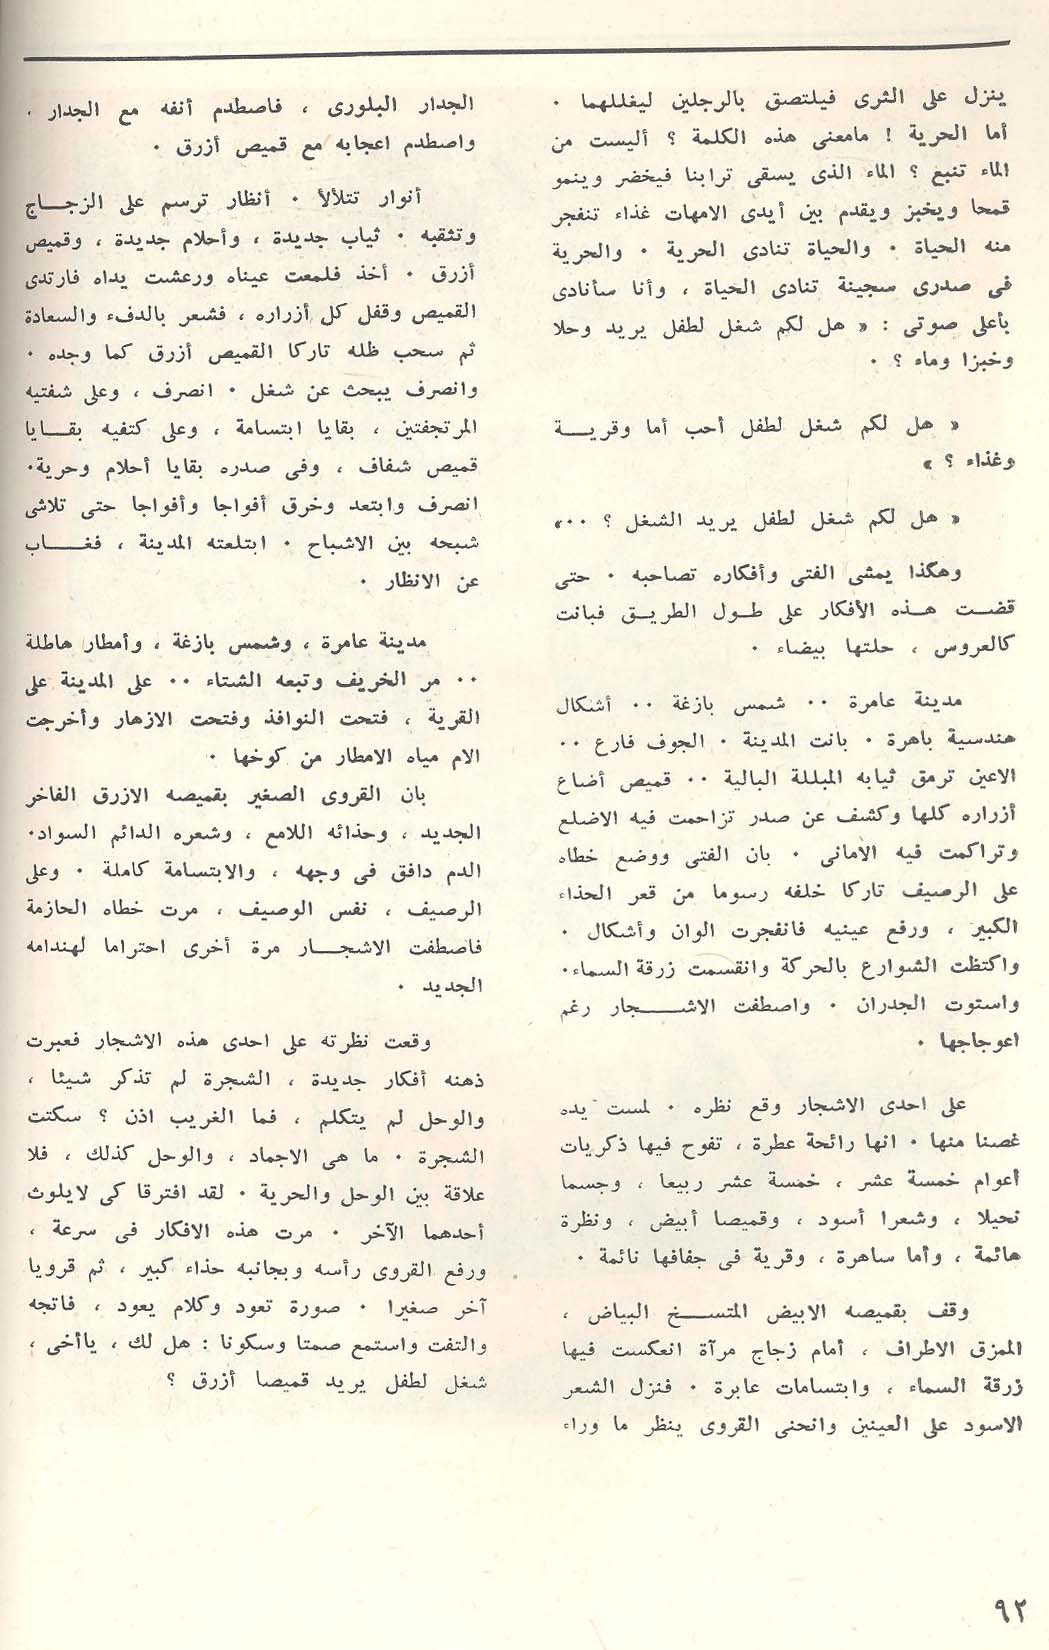 ينزل على الثرى فيلتصق بالرجلين ليغللهما ٠
أما الحرية ! مامعنى هذه الكلمة ؟ أليست من
الماء تنبع ؟ الماء الذى يسقى ترابنا فيخضر وينمو
قمحا ويخبز ويقدم بين أيدى الامهات غذاء تنفجر
منه الحياة ٠ والحياة تنادى الحرية ٠ والحرية
فى صدرى سجينة تنادى الحياة ، وأنا سأنادى
بأعلى صوتى : « هل لكم شغل لطفل يريد وحلا
وخبزا وماء ؟ ٠
« هل لكم شغل لطفل أحب أما وقريـــة
وغذاء ؟ »
« هل لكم شغل لطفل يريد الشغل ؟ ٠٠»
وهكذا يمشى الفتى وأفكاره تصاحبه ٠ حتى
قضـت هـذه الأفكار على طـول الطريـق فبانت
كالعروس ، حلتها بيضاء ٠
مدينة عامرة ٠٠ شمس بازغة ٠٠ أشكال
هندسية باهرة ٠ بانت المدينة ٠ الجوف فارع ٠٠
الاعين ترمق ثيابه المبللة البالية ٠٠ قميص أضاع
أزراره كلها وكشف عن صدر تزاحمت فيه الاضلع
وتراكمت فيه الأمانى ٠ بان الفتى ووضع خطاه
على الرصيف تاركا خلفه رسوما من قعر الحذاء
الكبير ، ورفع عينيه فانفجرت الوان وأشكال ٠
واكتظت الشوارع بالحركة وانقسمت زرقة السماء٠
واستوت الجدران ٠ واصطفت الاشـــــجار رغم
اعوجاجها ٠
على احدى الاشجار وقع نظره ٠ لمست يده
غصنا منها ٠ انها رائحة عطرة ، تفوح فيها ذكريات
أعوام خمسة عشر ، خمسة عشر ربيعا ، وجسما
نحيلا ، وشعرا أسود ، وقميصا أبيض ، ونظرة
هائمة ، وأما ساهرة ، وقرية فى جفافها نائمة ٠
وقف بقميصه الابيض المتســـخ البياض ،
الممزق الاطراف ، أمام زجاج مرآة انعكست فيها
زرقة السماء ، وابتسامات عابرة ٠ فنزل الشعر
الاسود على العينين وانحنى القروى ينظر ما وراء
الجدار البلورى ، فاصطدم أنفه مع الجدار ٠
واصطدم اعجابه مع قميص أزرق ٠
أنوار تتلألأ ٠ أنظار ترسم على الزجـــاج
وتثقبه ٠ ثياب جديدة ، وأحلام جديدة ، وقميص
أزرق ٠ أخذ فلمعت عيناه ورعشت يداه فارتدى
القميص وقفل كل أزراره ، فشعر بالدفء والسعادة
ثم سحب ظله تاركا القميص أزرق كما وجده ٠
وانصرف يبحث عن شغل ٠ انصرف ، وعلى شفتيه
المرتجفتين ، بقايا ابتسامة ، وعلى كتفيه بقــايا
قميص شفاف ، وفى صدره بقايا أحلام وحرية٠
انصرف وابتعد وخرق أفواجا وأفواجا حتى تلاشى
شبحه بين الاشباح ٠ ابتلعته المدينة ، فغـــاب
عن الانظار ٠
مدينة عامرة ، وشمس بازغة ، وأمطار هاطلة
٠٠ مر الخريف وتبعه الشتاء ٠٠ على المدينة على
القرية ، فتحت النوافذ وفتحت الازهار وأخرجت
الام مياه الامطار من كوخها ٠
بان القروى الصغير بقميصه الازرق الفاخر
الجديد ، وحذائه اللامع ، وشعره الدائم السواد٠
الدم دافق فى وجهه ، والابتسامة كاملة ٠ وعلى
الرصيف ، نفس الوصيف ، مرت خطاه الحازمة
فاصطفت الاشجـــار مرة أخرى احتراما لهندامه
الجديد ٠
وقعت نظرته على احدى هذه الاشجار فعبرت
ذهنه أفكار جديدة ، الشجرة لم تذكر شيئا ،
والوحل لم يتكلم ، فما الغريب اذن ؟ سكتت
الشجرة ٠ ما هى الاجماد ، والوحل كذلك ، فلا
علاقة بين الوحل والحرية ٠ لقد افترقا كى لايلوث
أحدهما الآخر ٠ مرت هذه الافكار فى سرعة ،
ورفع القروى رأسه وبجانبه حذاء كبير ، ثم قرويا
آخر صغيرا ٠ صورة تعود وكلام يعود ، فاتجه
والتفت واستمع صمتا وسكونا : هل لك ، ياأخى ،
شغل لطفل يريد قميصا أزرق ؟
٩٢